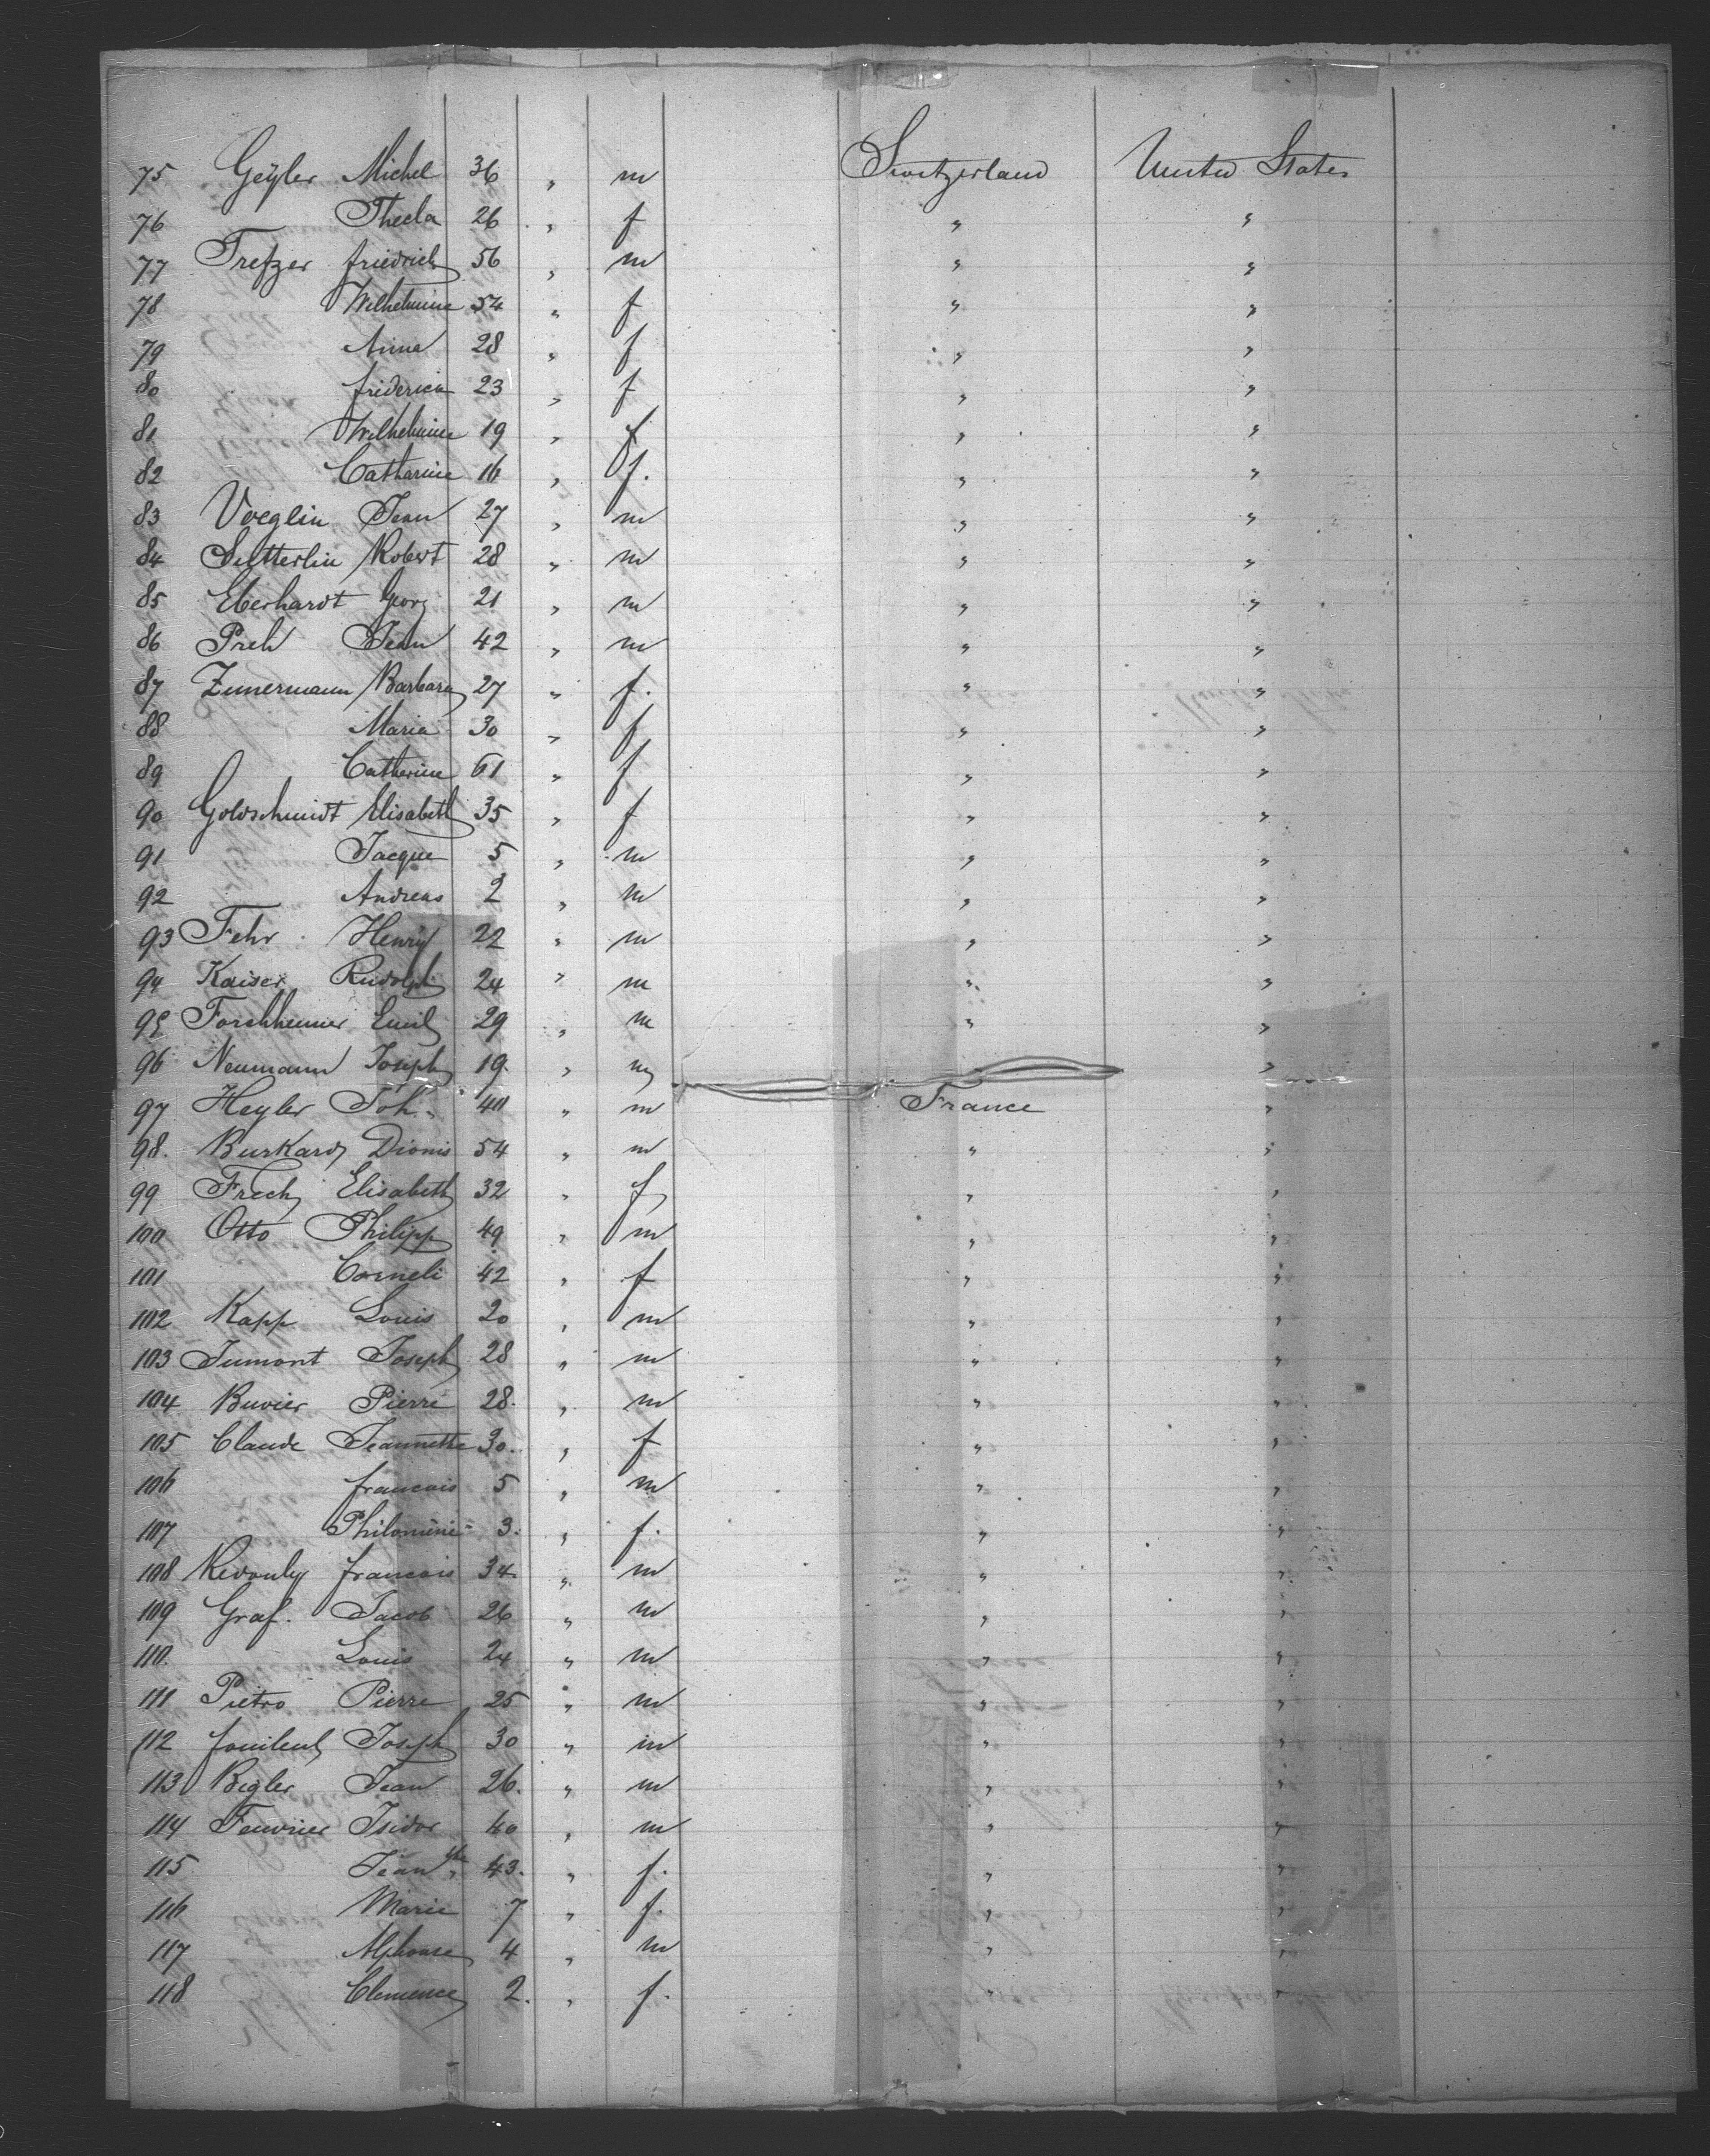 75 Geÿler Michel 36 " m Switzerland United States
76 Thecla 26 " f " "
77 Trefzer friedrich 56 " m " "
78 Wilhelmine 54 " f " "
79 Anna 28 " f " "
80 friderica 23 " f " "
81 Wilhelmine 19 " f " "
82 Catharine 16 " f. " "
83 Voeglin Jean 27 " m " "
84 Sutterlin Robert 28 " m " "
85 Eberhardt Georg 21 " m " "
86 Jean 42 " m " "
87 Zimermann Barbara 27 " f. " "
88 Maria 30 " f " "
89 Catherine 61 " f " "
90 Goldschmidt Elisabeth 35 " f " "
91 Jacque 5 " m " "
92 Andreas 2 " m " "
93 Fehr Henry 22 " m " "
94 Kaiser Rudolph 24 " m " "
95 Forchheimer Emil 29 " m " "
96 Neumann Joseph 19. " m "
97 Heyler Joh. " m France "
98. Burkard Dionis 54 " m " "
99 Frech Elisabeth 32 " f " "
100 Otto Philipp 49 " m " "
101 Corneli 42 " f " "
102 Kapp Louis 20 " m " "
103 Jumont Joseph 28 " m " "
104 Buvier Pierre 28. " m " "
105 Claude Jeannette 30. " f " "
106 francois 5 " m " "
107 Philomène 3. " f. " "
108 francois 34 " m " "
109 Graf. Jacob 26 " m " "
110. Louis 24 " m " "
111 Pietro Pierre 25 " m " "
112 Joseph 30 " m " "
113 Bigler Jean 26. " m " "
114 Feuvrier Isidor 40 " m " "
115 Jean 43. " f. " "
116 Marie 7 " f. " "
117 Alphonse 4 " m " "
118 Clemence 2. " f. " "